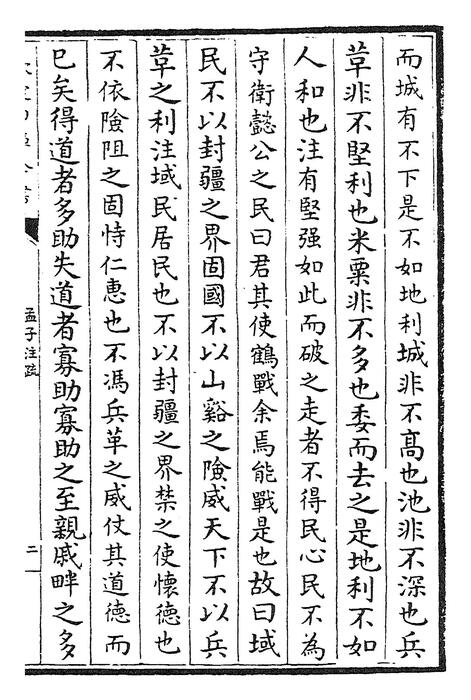 而城有不下是不如地利城非不髙也池非不深也兵
革非不堅利也米粟非不多也委而去之是地利不如
人和也注有堅强如此而破之走者不得民心民不為
守衛懿公之民曰君其使鶴戰余焉能戰是也故曰域
民不以封疆之界固國不以山谿之險威天下不以兵
革之利注域民居民也不以封疆之界禁之使懷德也
不依險阻之固恃仁惠也不馮兵革之威仗其道德而
已矣得道者多助失道者寡助寡助之至親戚畔之多
孟子注疏
二